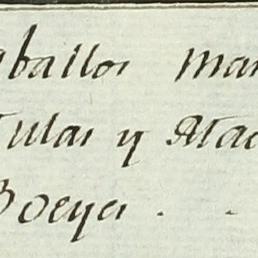 aballos man
Tulas y Atac
Boeyes . .